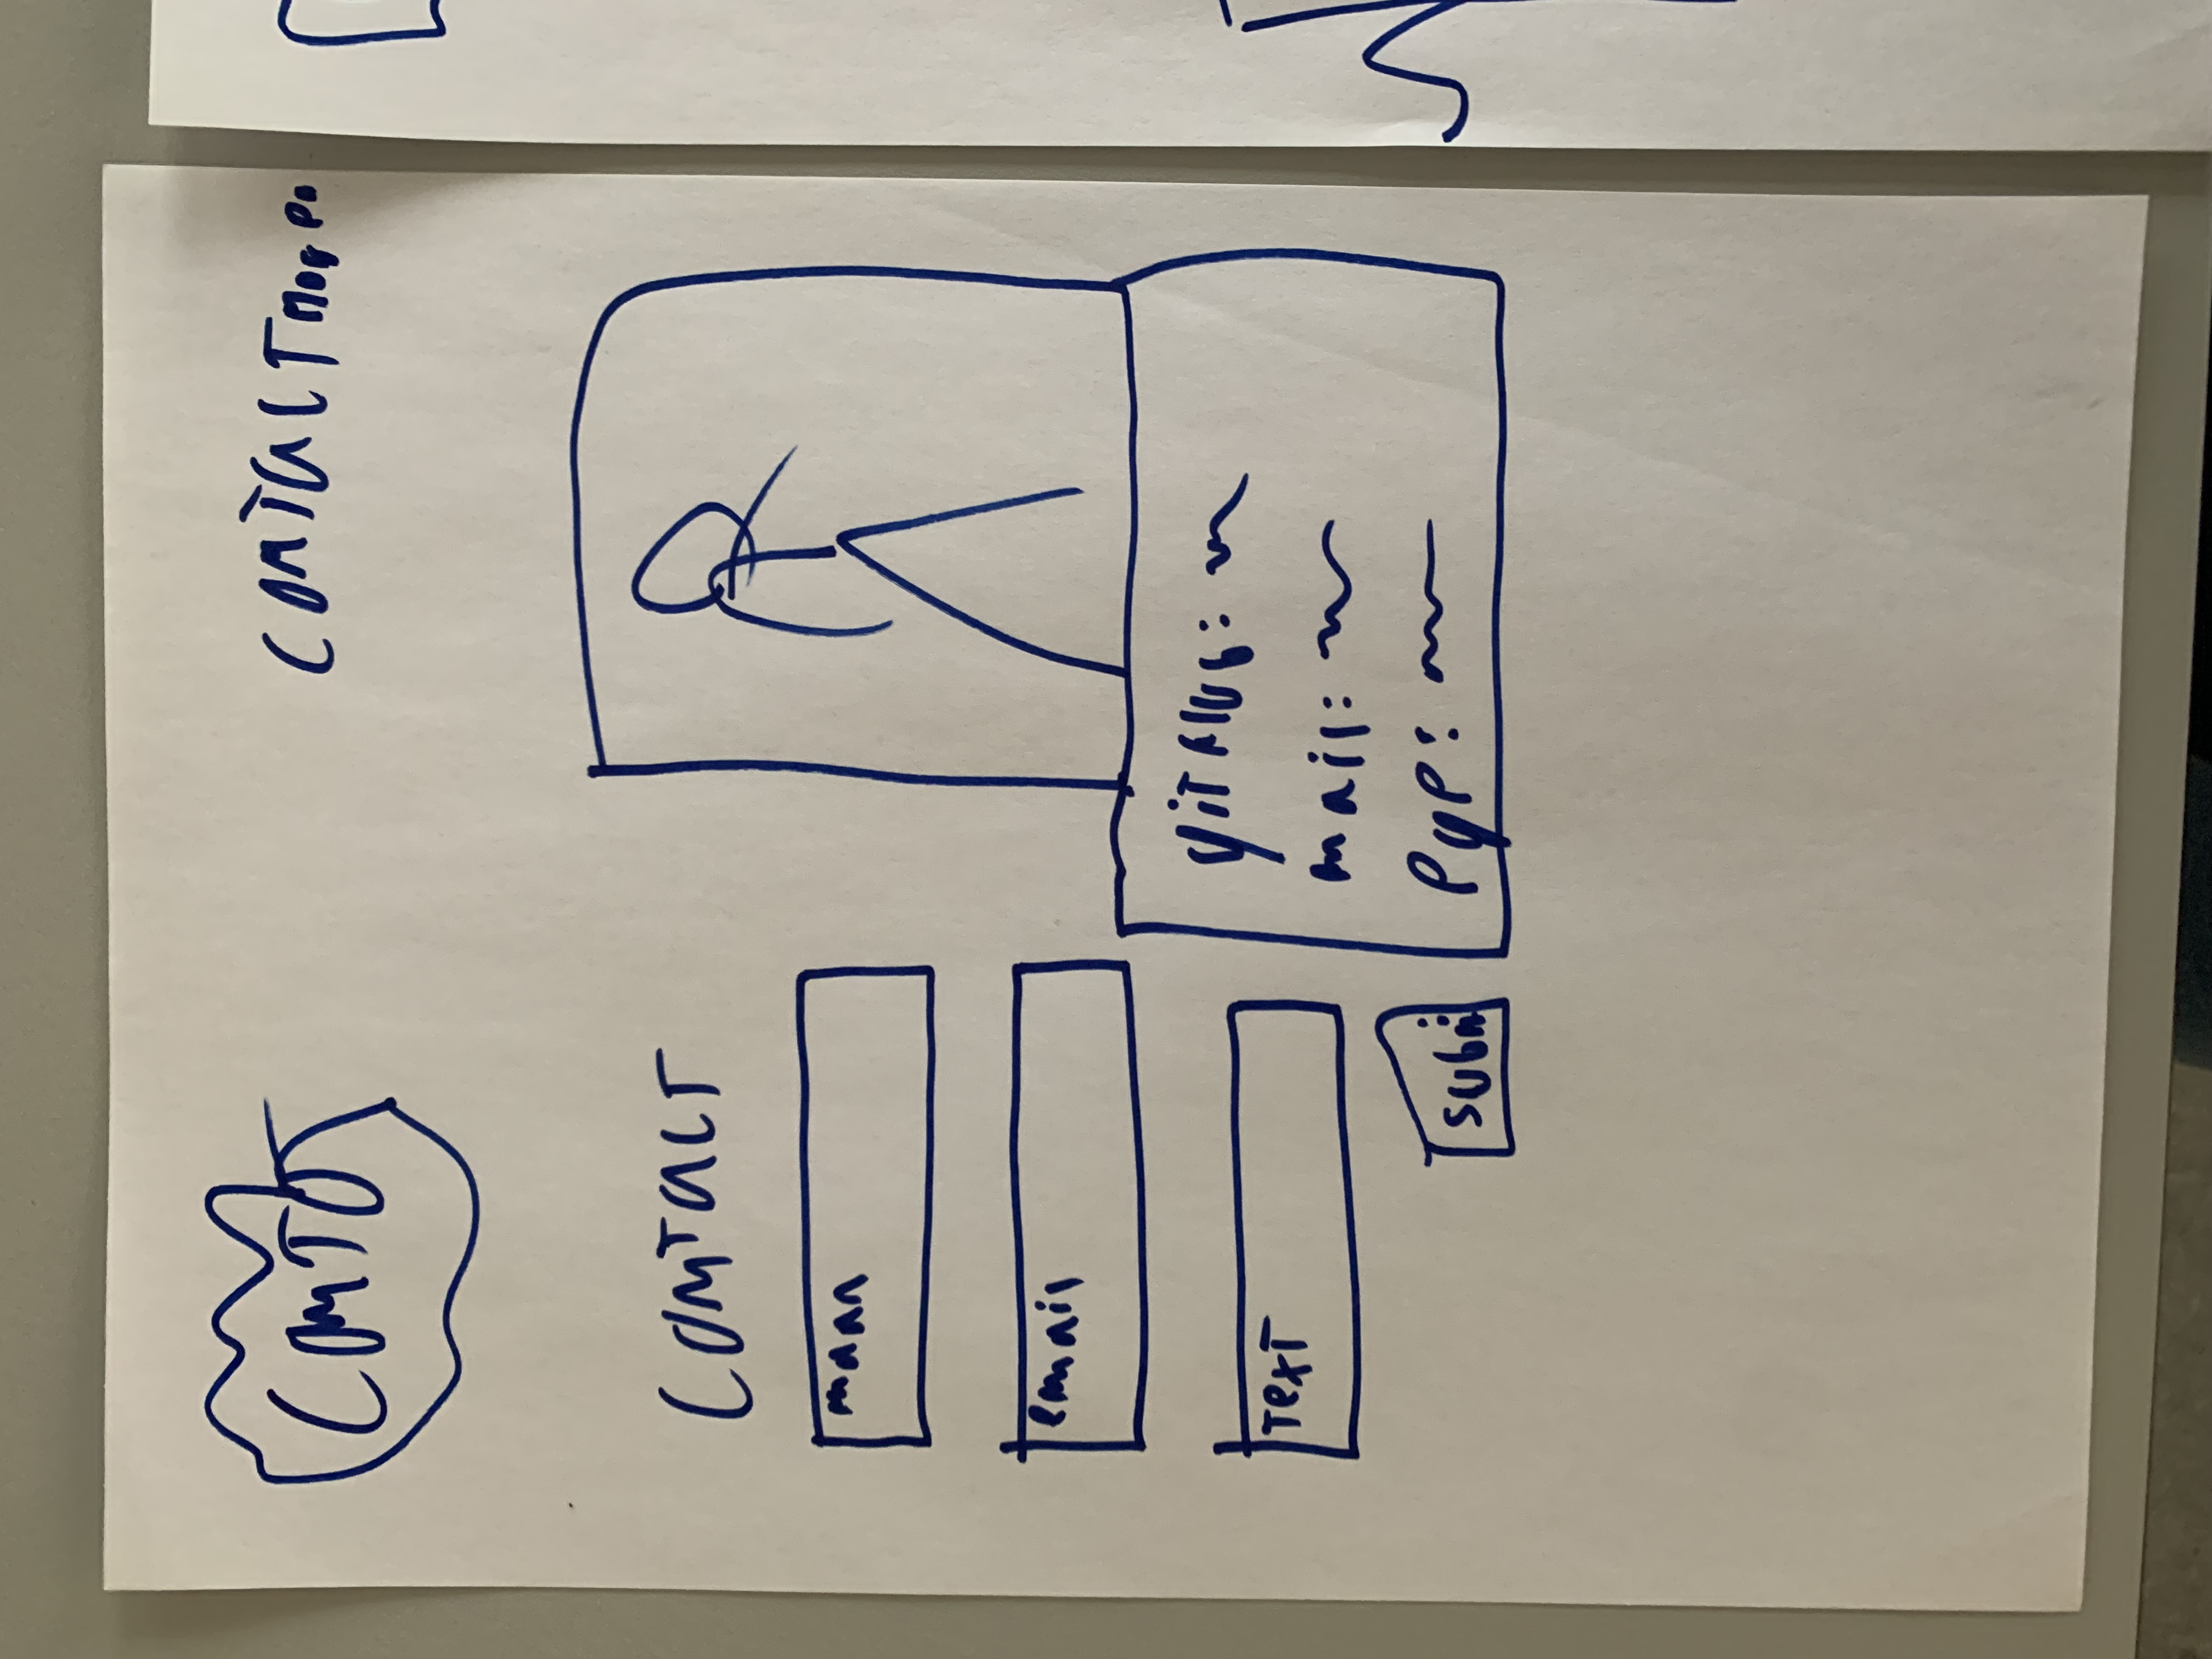 CONTO
CONTACT
CONTACT
naan
email
TEXT
submi
github:
mail:
PGP: